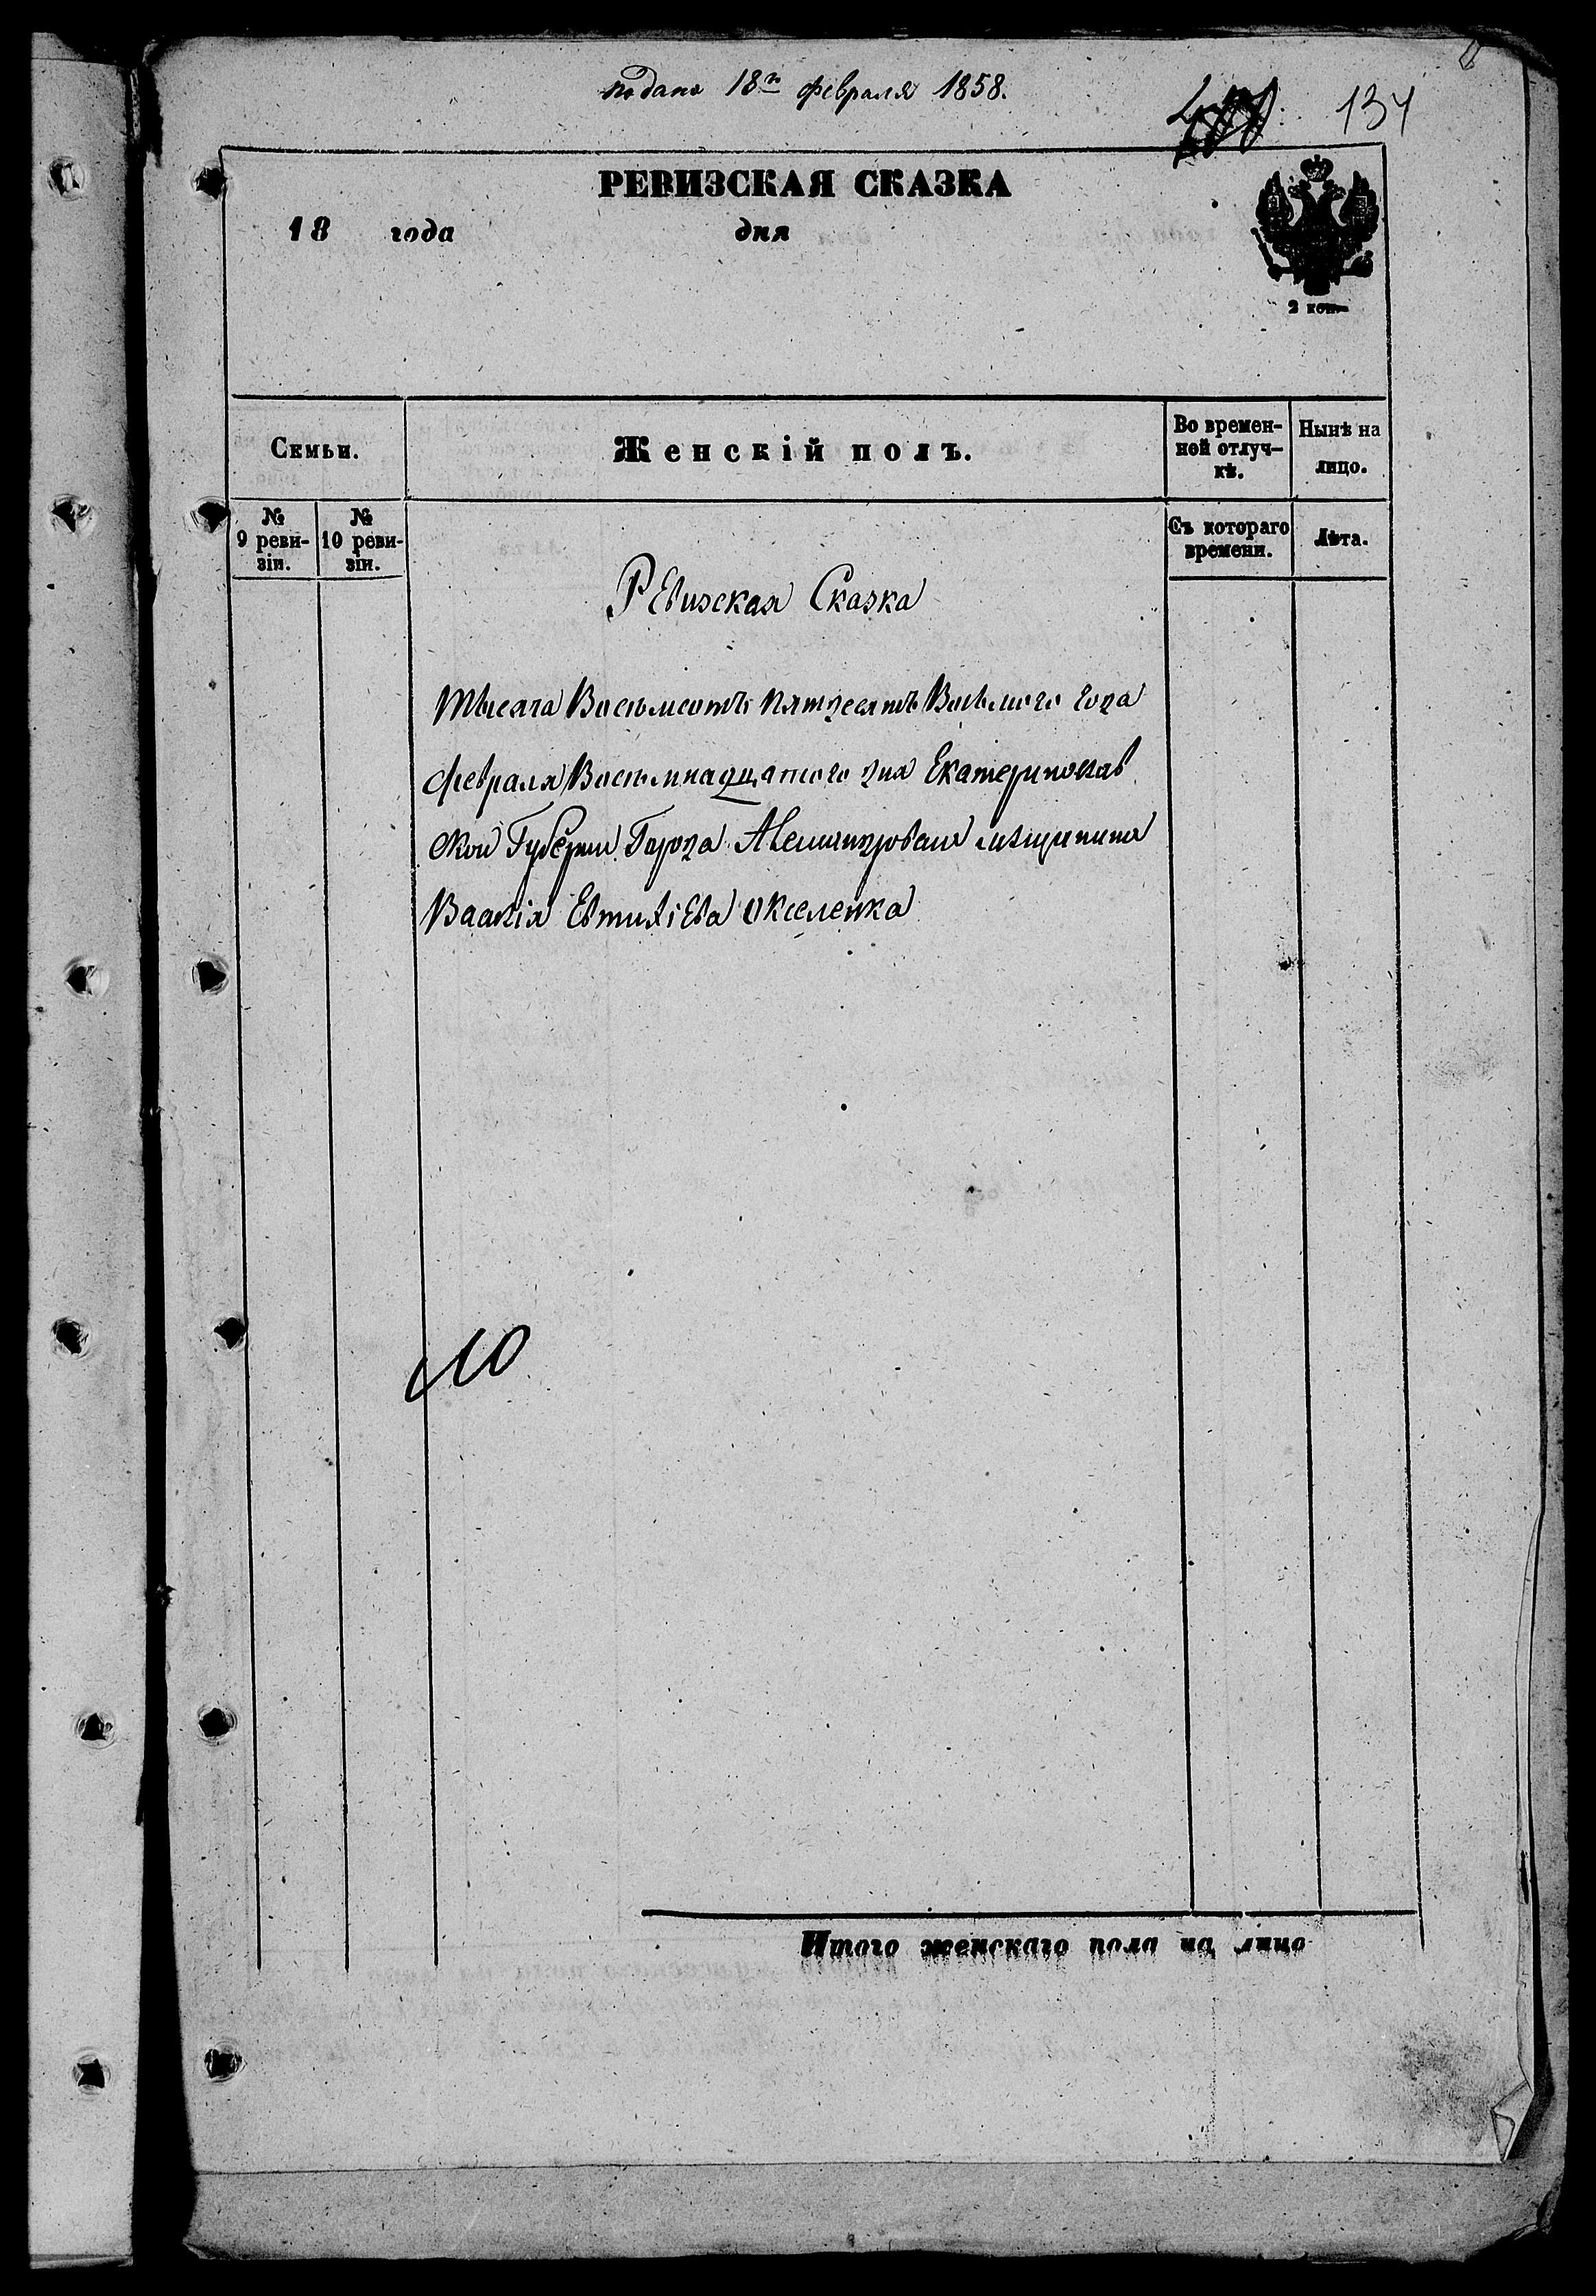 подано 18го февраля 1858.
134
РЕВИЗСКАЯ СКАЗКА
18 года дня
2 коп.
Семьи.
Женскій полъ.
Во времен-
ной отлуч-
кѣ.
Нынѣ на
лицо.
№
9 реви-
зіи.
№
10 реви-
зіи.
Съ котораго
времени.
Лѣта.
Ревизская Сказка
тысяча Восемсотъ пятдесятъ Восьмого года
февраля Восемнадцатого дня Екатеринослав
ской Губернии Города мѣщанина
Евтихіева
10
Итого женскаго пола на лицо